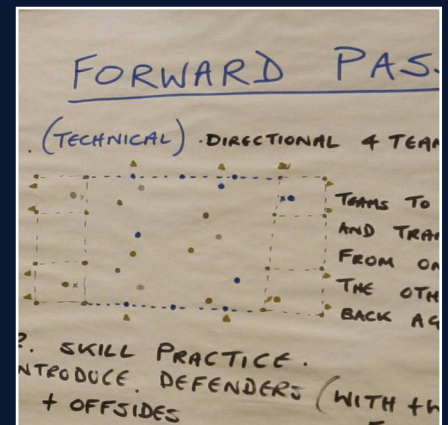 FORWARD PAS
. (TECHNICAL) . DIRECTIONAL 4 TEAM
TEAMS TO
AND TRA
FROM O
THE OTH
BACK AG
?. SKILL PRACTICE.
NTRODUCE DEFENDERS (WITH th
+ OFFSIDES